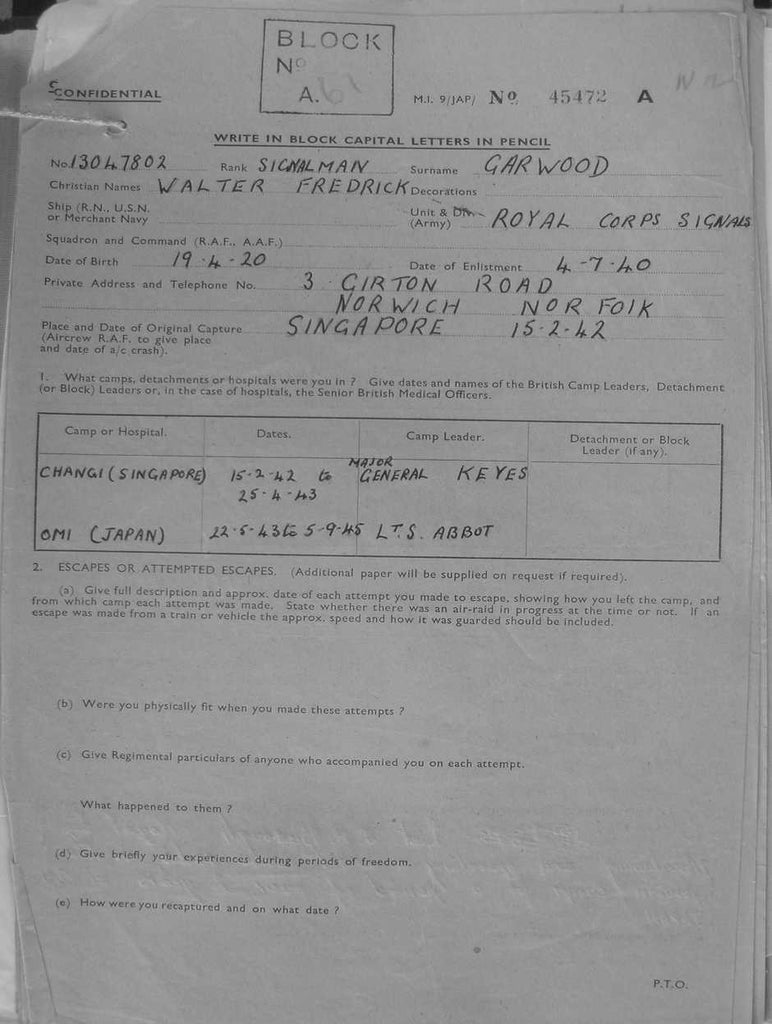 BLOCK
No
A.
CONFIDENTIAL
M.I. 9/JAP/ No 45472 A
WRITE IN BLOCK CAPITAL LETTERS IN PENCIL
No. 13047802 Rank SIGNALMAN Surname GARWOOD
Christian Names WALTER FREDRICK Decorations
Ship (R.N., U.S.N. or Merchant Navy
Unit & Div. (Army) ROYAL CORPS SIGNALS
Squadron and Command (R.A.F., A.A.F.)
Date of Birth 19-4-20 Date of Enlistment 4-7-40
Private Address and Telephone No. 3 GIRTON ROAD
NORWICH NORFOlK
Place and Date of Original Capture SINGAPORE 15-2-42
(Aircrew R.A.F. to give place
and date of a/c crash).
1. What camps, detachments or hospitals were you in ? Give dates and names of the British Camp Leaders, Detachment
(or Block) Leaders or, in the case of hospitals, the Senior British Medical Officers.
Camp or Hospital. Dates. Camp Leader. Detachment or Block
Leader (if any).
CHANGI (SINGAPORE) 15-2-42 to MAJOR GENERAL KEYES
25-4-43
OMI (JAPAN) 22-5-43 to 5-9-45 LT. S. ABBOT
2. ESCAPES OR ATTEMPTED ESCAPES. (Additional paper will be supplied on request if required).
(a) Give full description and approx. date of each attempt you made to escape, showing how you left the camp, and
from which camp each attempt was made. State whether there was an air-raid in progress at the time or not. If an
escape was made from a train or vehicle the approx. speed and how it was guarded should be included.
(b) Were you physically fit when you made these attempts ?
(c) Give Regimental particulars of anyone who accompanied you on each attempt.
What happened to them ?
(d) Give briefly your experiences during periods of freedom.
(e) How were you recaptured and on what date ?
P.T.O.